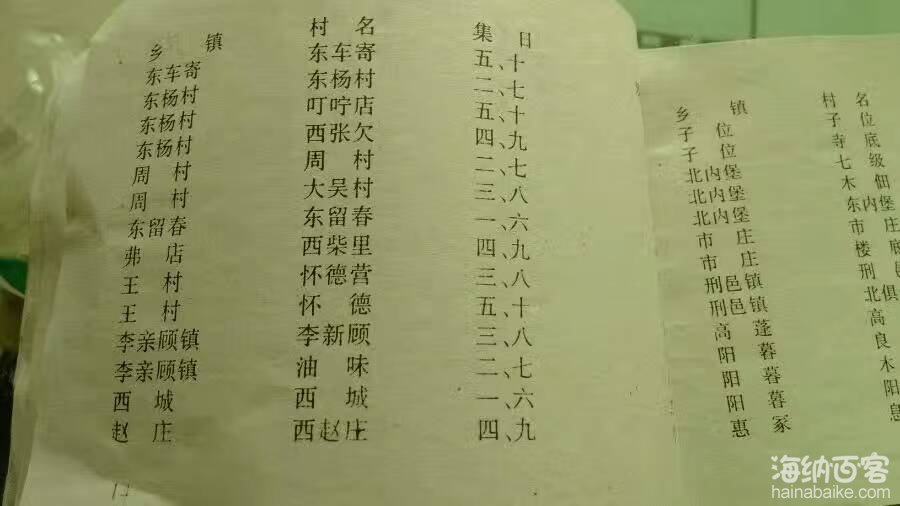 乡镇 村名 集日
东车寄 东车寄 五、十
东杨村 东杨村 二、七
东杨村 叮咛店 五、十
东杨村 西张欠 四、九
周村 周村 二、七
周村 大吴村 三、八
东留春 东留春 一、六
弗店 西柴里 四、九
王村 怀德营 三、八
王村 怀德 五、十
李亲顾镇 李新顾 三、八
李亲顾镇 油味 二、七
西城 西城 一、六
赵庄 西赵庄 四、九
乡镇 村名
子位 子位
子位 寺底
北内堡 七级
北内堡 木佃
北内堡 东内堡
市庄 市庄
市庄 楼底
刑邑镇 刑邑
刑邑镇 北俱
高蓬 高
阳暮 良
阳暮 木
阳暮 阳
惠冢 息
海纳百客
hainabaike.com